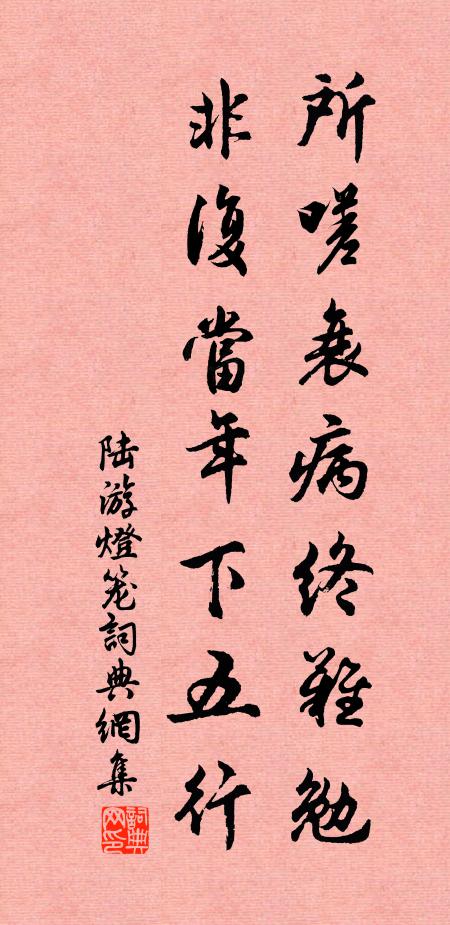 所嗟衰病終難勉
非復當年下五行
陸游燈笼詞典網集
詞典网印